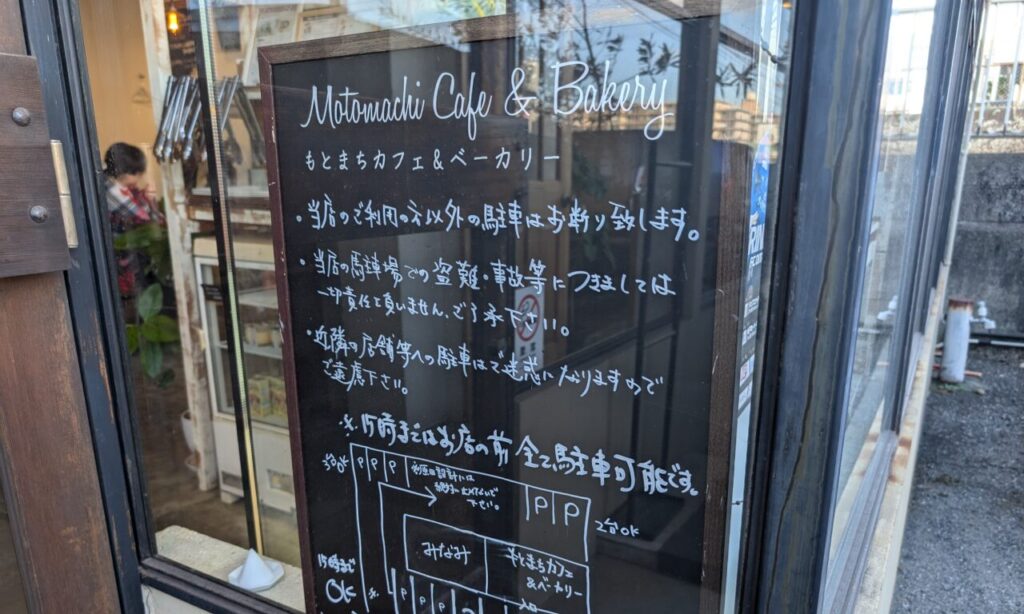 Motomachi Cafe & Bakery
もとまちカフェ&ベーカリー
・当店のご利用の方以外の駐車はお断り致します。
・当店の駐車場での盗難・事故等につきましては
一切責任を負いません。ご了承下さい。
・近隣の店舗等への駐車はご迷惑になりますので
ご遠慮下さい。
※15時まではお店の前全て駐車可能です。
3台OK
P P P
設計には
下さい。
P P
2台OK
みなみ
もとまちカフェ
&ベーカリー
15時まで
OK
P P P P
入口